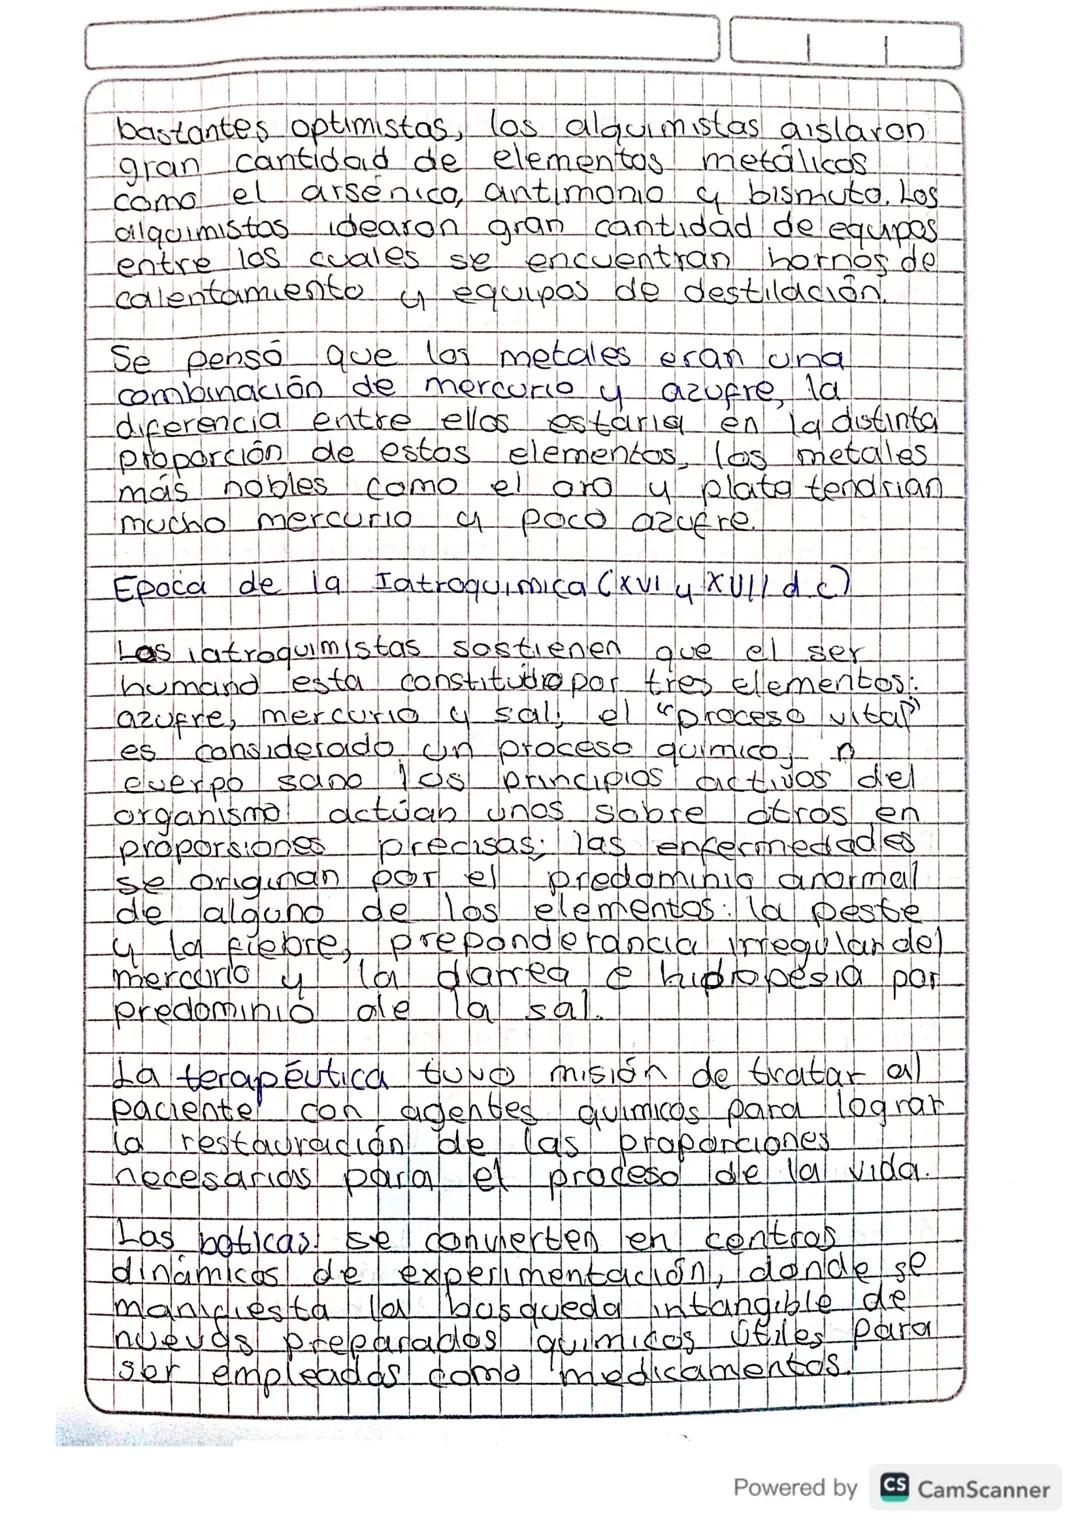 bastantes optimistas, los alquimistas aislaron
gran cantidad de elementos metálicos
como el arsénico, antimonio y bismuto. Los
alquimistas idearon gran cantidad de equipos
entre los cuales se encuentran hornos de
calentamiento y equipos de destilación.
Se pensó que los metales eran una
combinación de mercurio y azufre, la
diferencia entre ellos estaria en la distinta
proporción de estos elementos, los metales
más nobles como el oro y plata tendrian
mucho mercurio y poco azufre.
Epoca de la Iatroquimica (XVI y XVII d.c)
Los iatroquimistas sostienen que el ser
humano esta constituido por tres elementos:
azufre, mercurio y sal; el "proceso vital"
es considerado un proceso quimico, n
cuerpo sano los principios activos del
organismo actúan unos sobre otros en
proporsiones precisas; las enfermedades
se originan por el predominio anormal
de alguno de los elementos: la peste
y la fiebre, preponderancia irregular del
mercurio y la diarrea e hidropesia por
predominio de la sal.
La terapéutica tuvo misión de tratar al
paciente con agentes quimicos para lograr
la restauración de las proporciones
necesarias para el proceso de la vida.
Las boticas se convierten en centros
dinámicos de experimentación, donde se
manifiesta la busqueda intangible de
nuevos preparados quimicos útiles para
ser empleados como medicamentos.
Powered by CS CamScanner